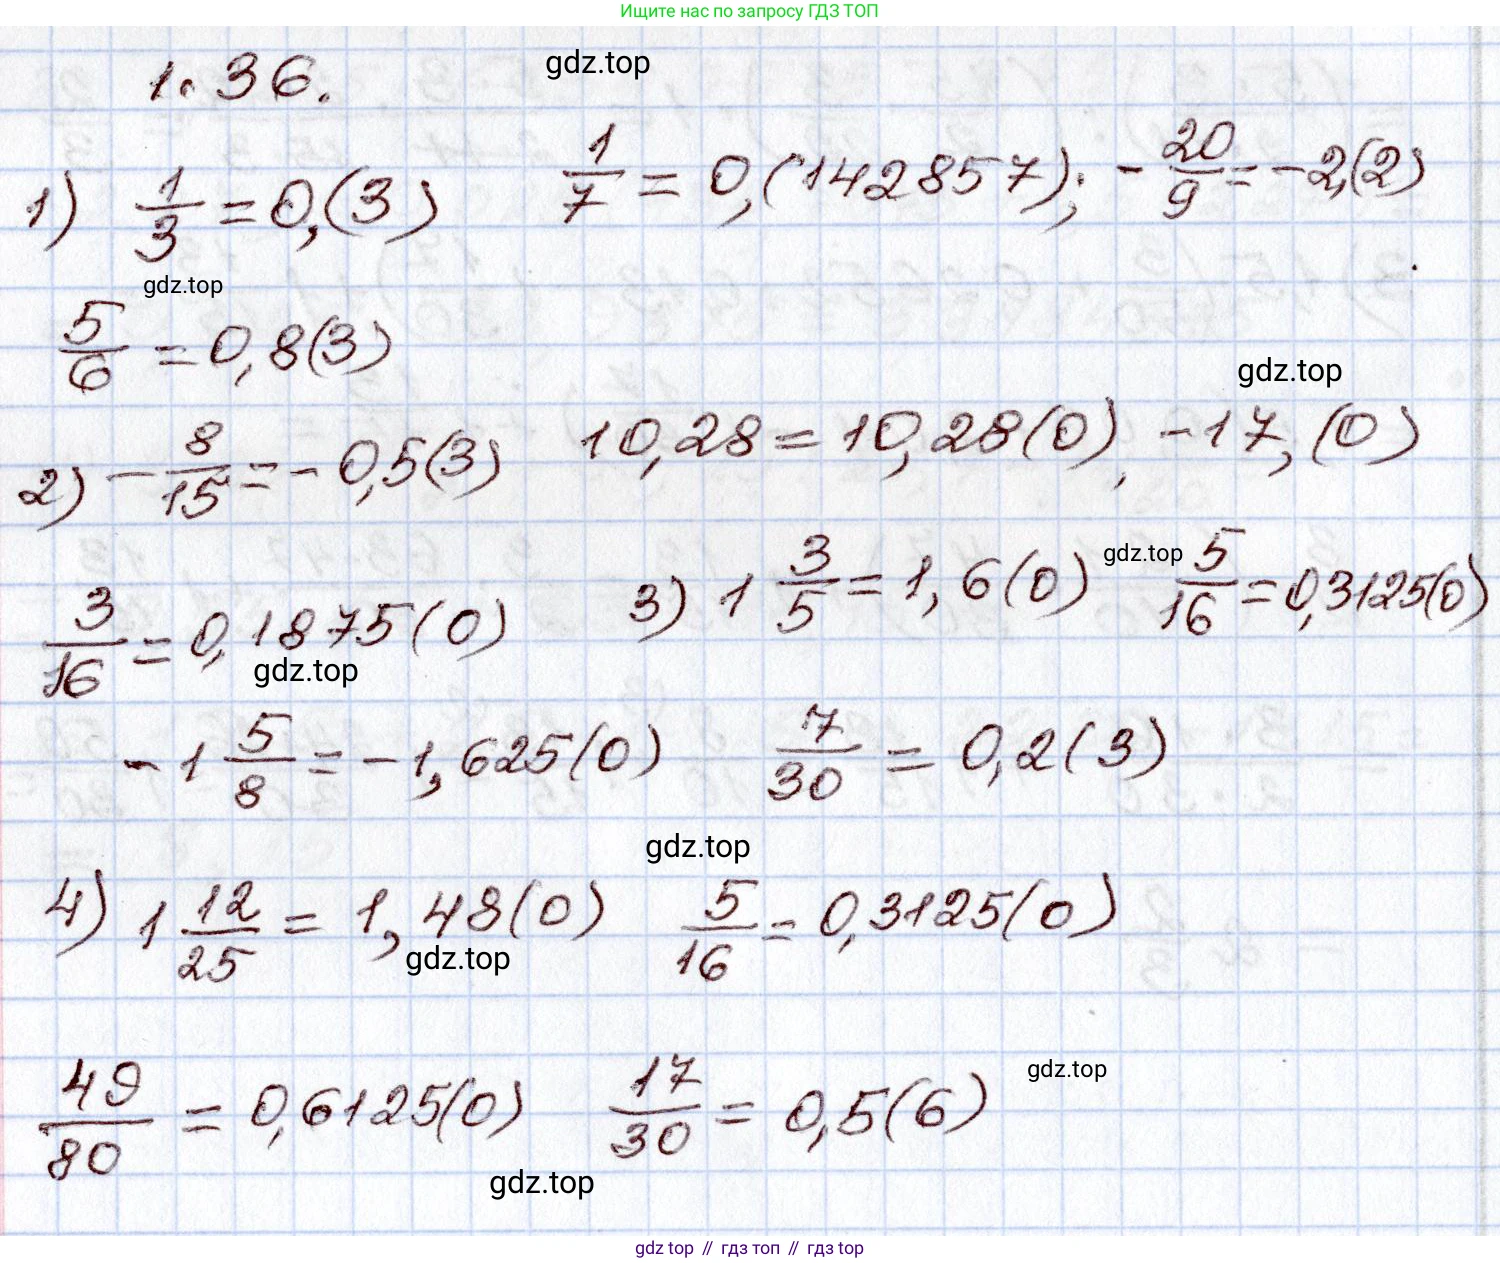 Ищите нас по запросу ГДЗ ТОП
1.36. gdz.top
1) 1/3 = 0,(3) 1/7 = 0,(142857); -20/9 = -2,(2)
gdz.top
5/6 = 0,8(3)
gdz.top
2) -8/15 = -0,5(3) 10,28 = 10,28(0), -17,(0)
3/16 = 0,1875(0) 3) 1 3/5 = 1,6(0) gdz.top 5/16 = 0,3125(0)
gdz.top
-1 5/8 = -1,625(0) 7/30 = 0,2(3)
gdz.top
4) 1 12/25 = 1,48(0) 5/16 = 0,3125(0)
gdz.top
49/80 = 0,6125(0) 17/30 = 0,5(6) gdz.top
gdz.top
gdz top // гдз топ // гдз top